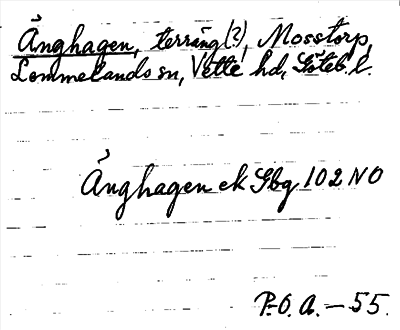 Ånghagen, terräng (?), Mosstorp,
Lommelands sn, Vette hd, Göteb. l.
Ånghagen ek Gbg 102 NO
P.O.A. – 55.